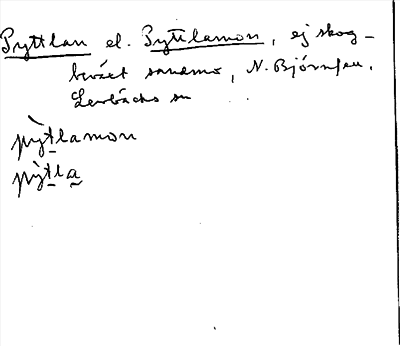 Pyttlan el. Pyttlamon, ej skog-
beväxt sandmo, N. Björnfen.
Lerbäcks sn
pỳtlamon
pỳtla